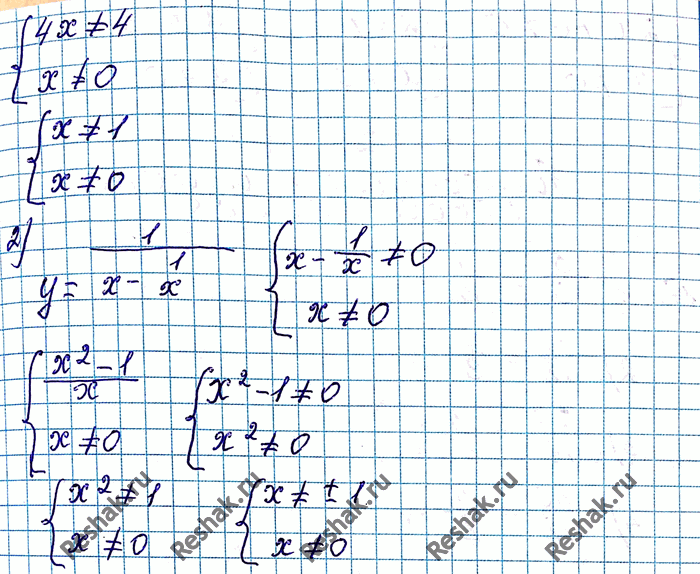 { 4x ≠ 4
x ≠ 0
{ x ≠ 1
x ≠ 0
2) y = 1 / (x - 1/x) { x - 1/x ≠ 0
x ≠ 0
{ (x² - 1)/x { x² - 1 ≠ 0
x ≠ 0 x² ≠ 0
{ x² ≠ 1 { x ≠ ± 1
x ≠ 0 x ≠ 0
Reshak.ru Reshak.ru Reshak.ru Reshak.ru Reshak.ru